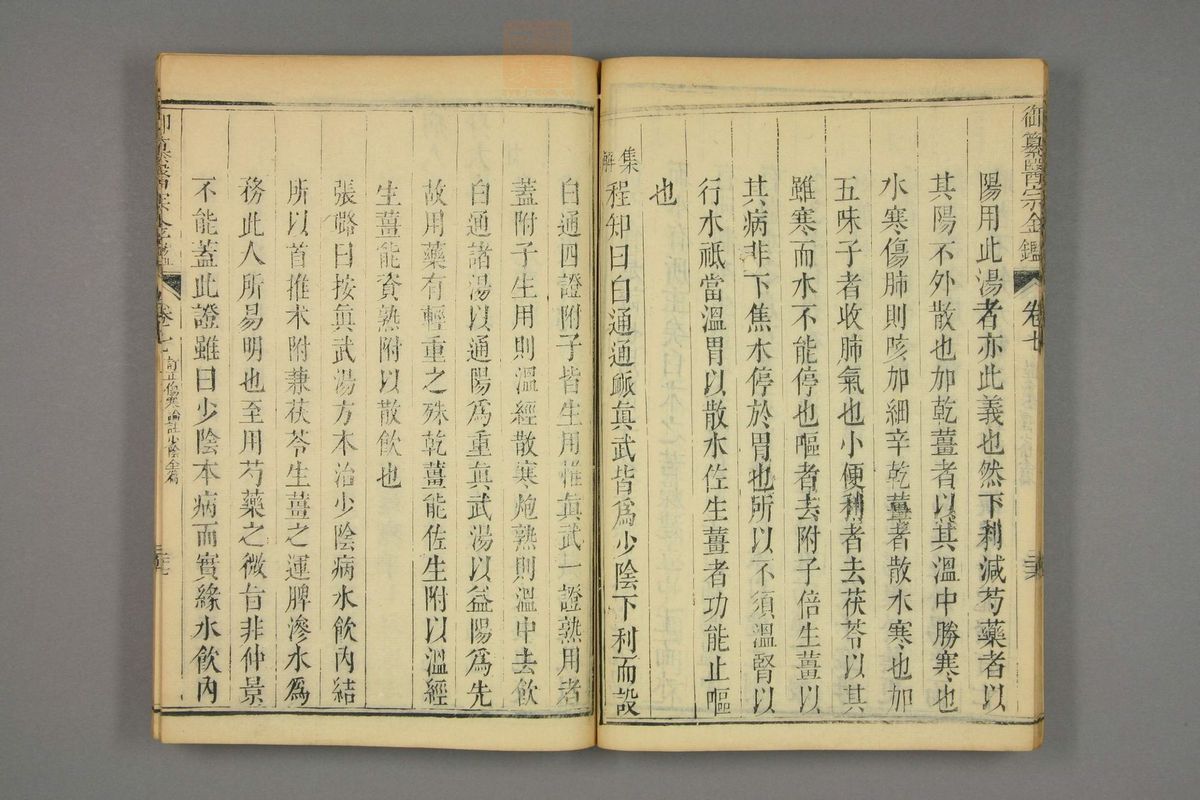 御纂醫宗金鑑 卷七
陽用此湯者亦此義也然下利減芍藥者以
其陽不外散也加乾薑者以其溫中勝寒也
水寒傷肺則咳加細辛乾薑者散水寒也加
五味子者收肺氣也小便利者去茯苓以其
雖寒而水不能停也嘔者去附子倍生薑以
其病非下焦水停於胃也所以不須溫腎以
行水祇當溫胃以散水佐生薑者功能止嘔
也
集解程知曰白通通脈眞武皆爲少陰下利而設
白通四證附子皆生用惟眞武一證熟用者
蓋附子生用則溫經散寒炮熟則溫中去飲
白通諸湯以通陽爲重眞武湯以益陽爲先
故用藥有輕重之殊乾薑能佐生附以溫經
生薑能資熟附以散飲也
張璐曰按眞武湯方本治少陰病水飲內結
所以首推朮附兼茯苓生薑之運脾滲水爲
務此人所易明也至用芍藥之微旨非仲景
不能蓋此證雖曰少陰本病而實緣水飲內
御纂醫宗金鑑 卷七 訂正傷寒論註少陰全篇